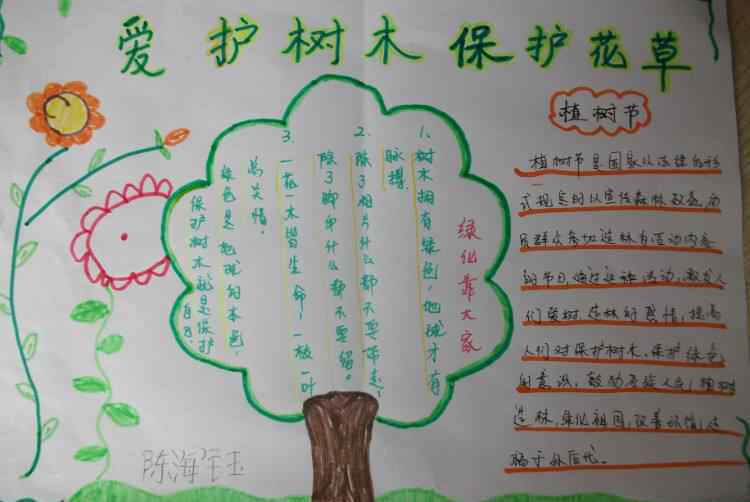 爱护树木保护花草
绿化靠大家
1. 树木拥有绿色,地球才有
脉搏.
2. 除了相片什么都不要带走,
除了脚印什么都不要留。
3. 一花一木皆生命,一枝一叶
总关情.
绿色是地球的本色,
保护树木就是保护
自己.
植树节
植树节是国家以法律的形
式规定的以宣传森林效益,动
员群众参加造林为活动内容
的节日,通过这种活动,激发人
们爱树造林的感情,提高
人们对保护树木,保护绿色
的意识,鼓励
造林,绿化祖国,改善环境,造
福于外后代。
陈海宝玉